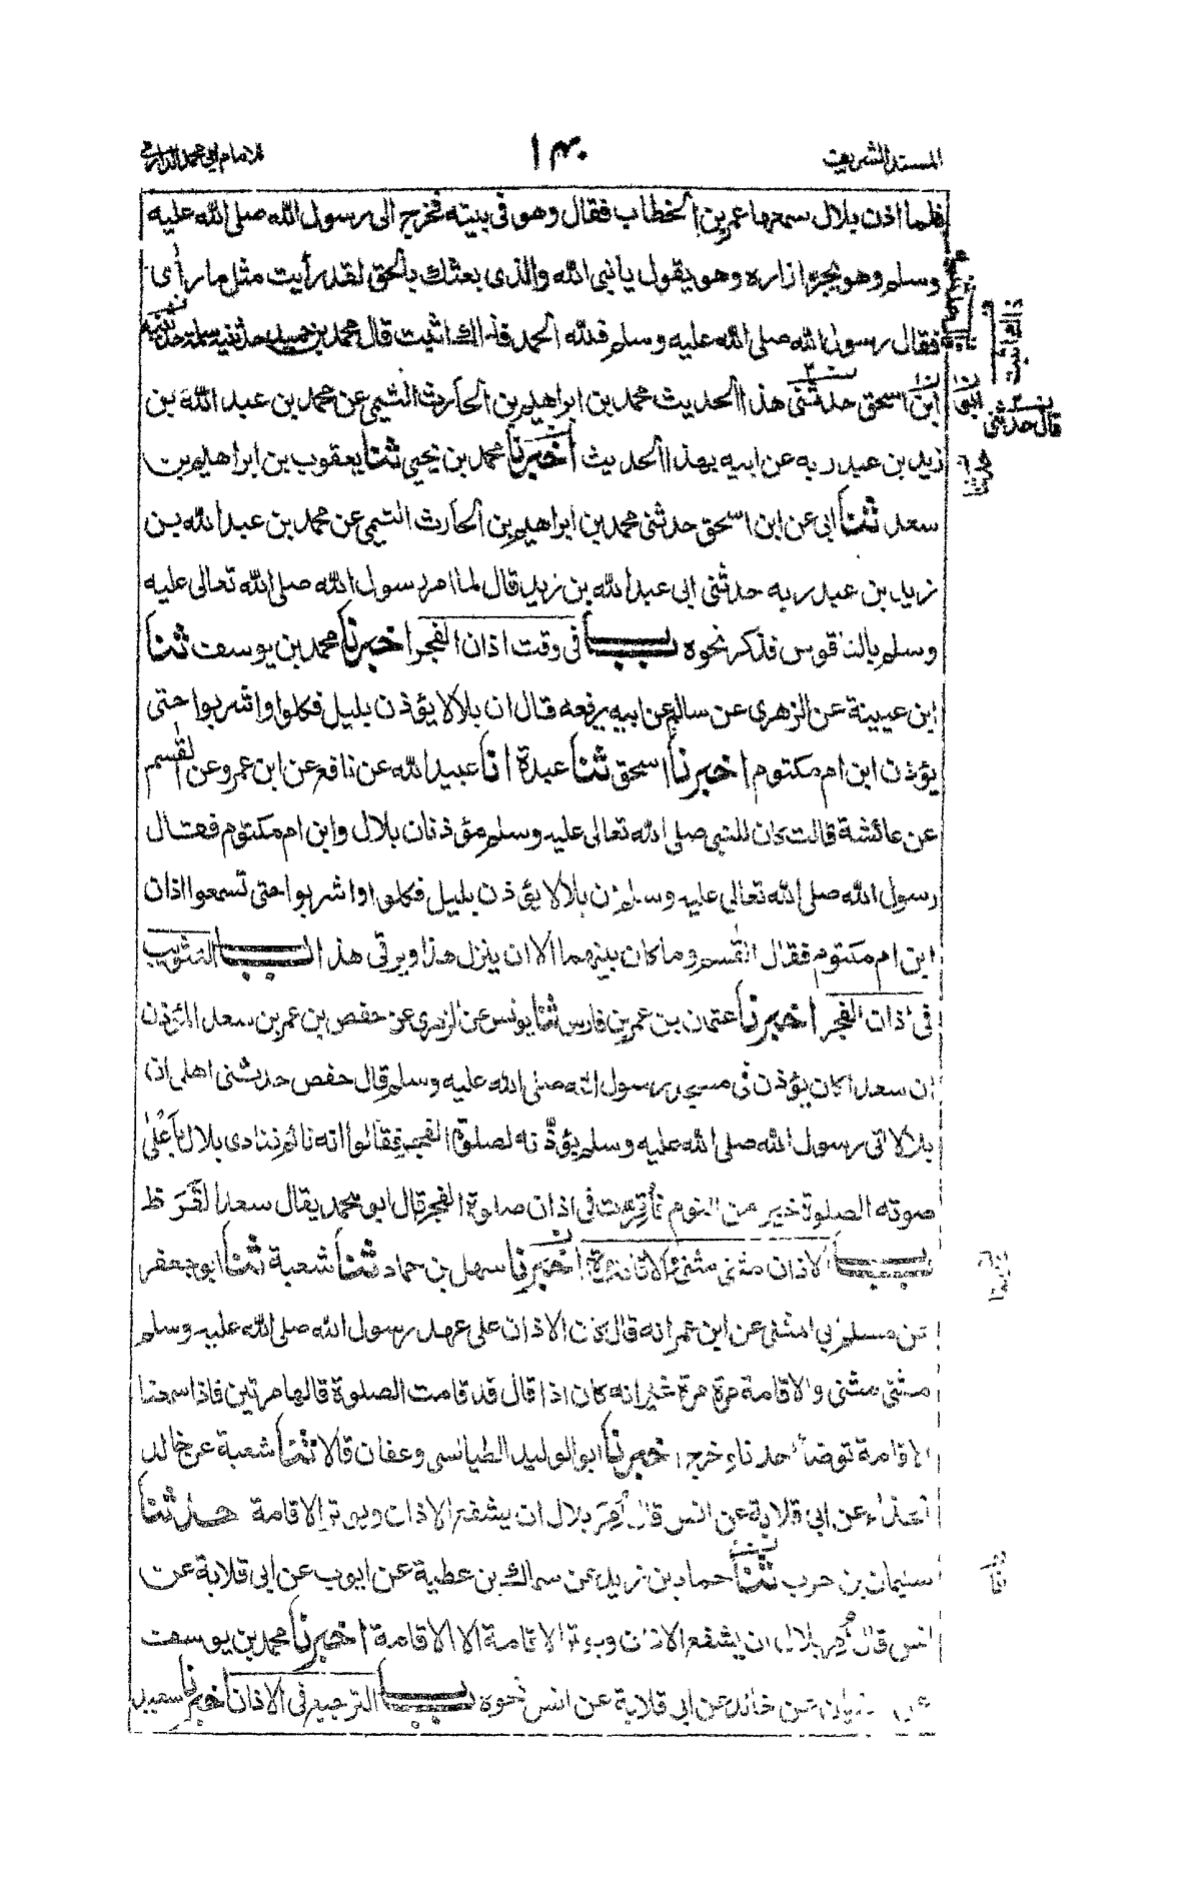 المسند الشريف
١٤٠
للامام ابي محمد الدارمي
فلما اذن بلال سمعها عمر بن الخطاب فقال وهو فى بيته فخرج الى رسول الله صلى الله عليه
وسلم وهو يجر ازاره وهو يقول يا نبى الله والذى بعثك بالحق لقد رأيت مثل ما رأى
فقال رسول الله صلى الله عليه وسلم فلله الحمد فذاك اثبت قال محمد بن حميد حدثنيه سلمة حدثنيه
ابن اسحق حدثنى هذا الحديث محمد بن ابراهيم بن الحارث التيمى عن محمد بن عبد الله بن
زيد بن عبد ربه عن ابيه بهذا الحديث اخبرنا محمد بن يحيى ثنا يعقوب بن ابراهيم بن
سعد ثنا ابى عن ابن اسحق حدثنى محمد بن ابراهيم بن الحارث التيمى عن محمد بن عبد الله بن
زيد بن عبد ربه حدثنى ابى عبد الله بن زيد قال لما امر رسول الله صلى الله تعالى عليه
وسلم بالناقوس فذكر نحوه باب فى وقت اذان الفجر اخبرنا محمد بن يوسف ثنا
ابن عيينة عن الزهرى عن سالم عن ابيه يرفعه قال ان بلالا يؤذن بليل فكلوا واشربوا حتى
يؤذن ابن ام مكتوم اخبرنا اسحق ثنا عبدة انا عبيد الله عن نافع عن ابن عمر وعن القسم
عن عائشة قالت كان للنبى صلى الله تعالى عليه وسلم مؤذنان بلال وابن ام مكتوم فقال
رسول الله صلى الله تعالى عليه وسلم ان بلالا يؤذن بليل فكلوا واشربوا حتى تسمعوا اذان
ابن ام مكتوم فقال القسم وما كان بينهما الا ان ينزل هذا ويرقى هذا باب التثويب
فى اذان الفجر اخبرنا عثمان بن عمر بن فارس ثنا يونس عن الزهرى عن حفص بن عمر بن سعد المؤذن
ان سعدا كان يؤذن فى مسجد رسول الله صلى الله عليه وسلم قال حفص حدثنى اهلى ان
بلالا اتى رسول الله صلى الله عليه وسلم يؤذنه لصلوة الفجر فقالوا انه نائم فنادى بلال بأعلى
صوته الصلوة خير من النوم فأقرت فى اذان صلوة الفجر قال ابو محمد يقال سعد القرظ
باب الاذان مثنى مثنى والاقامة مرة اخبرنا سهل بن حماد ثنا شعبة ثنا ابو جعفر
عن مسلم ابى المثنى عن ابن عمر انه قال كان الاذان على عهد رسول الله صلى الله عليه وسلم
مثنى مثنى والاقامة مرة مرة غير انه كان اذا قال قد قامت الصلوة قالها مرتين فاذا سمعنا
الاقامة توضأ احدنا وخرج اخبرنا ابو الوليد الطيالسى وعفان قالا ثنا شعبة عن خالد
الحذاء عن ابى قلابة عن انس قال أُمِرَ بلال ان يشفع الاذان ويوتر الاقامة حدثنا
سليمان بن حرب ثنا حماد بن زيد عن سماك بن عطية عن ايوب عن ابى قلابة عن
انس قال أمر بلال ان يشفع الاذان ويوتر الاقامة الا الاقامة اخبرنا محمد بن يوسف
عن سفيان عن خالد عن ابى قلابة عن انس نحوه باب الترجيع فى الاذان اخبرنا سعيد
قال حدثنى